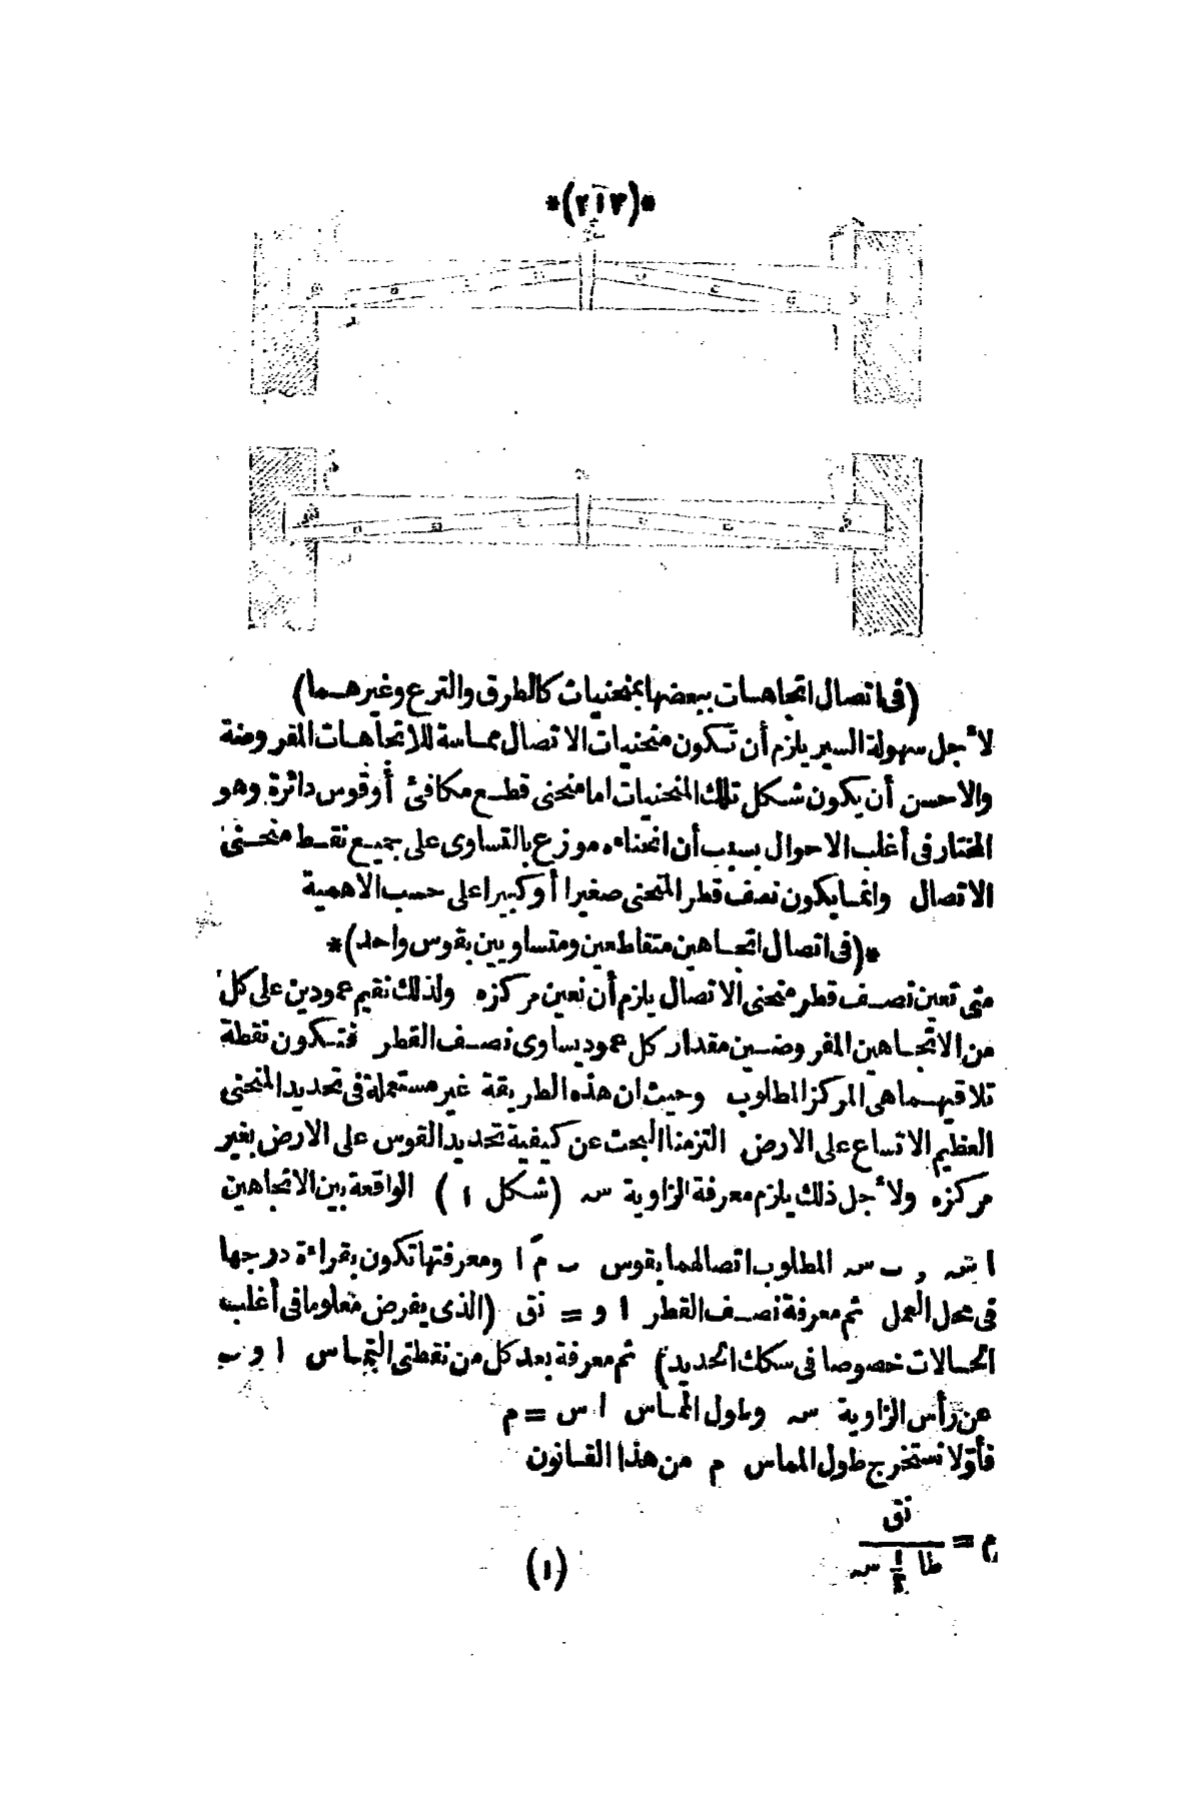 *(٢١٣)*
(فى اتصال اتجاهات ببعضها بمنحنيات كالطرق والترع وغيرهما)
لأجل سهولة السير يلزم أن تكون منحنيات الاتصال مماسة للاتجاهات المفروضة
والاحسن أن يكون شكل تلك المنحنيات اما منحنى قطع مكافئ أوقوس دائرة وهو
المختار فى أغلب الاحوال بسبب أن انحناءه موزع بالتساوى على جميع نقط منحنى
الاتصال وانما يكون نصف قطر المنحنى صغيرا أوكبيرا على حسب الاهمية
*(فى اتصال اتجاهين متقاطعين ومتساويين بقوس واحد)*
متى تعين نصف قطر منحنى الاتصال يلزم أن نعين مركزه ولذلك نقيم عمودين على كل
من الاتجاهين المفروضين مقدار كل عمود يساوى نصف القطر فتكون نقطة
تلاقيهما هى المركز المطلوب وحيث ان هذه الطريقة غير مستعملة فى تحديد المنحنى
العظيم الاتساع على الارض التزمنا البحث عن كيفية تحديد القوس على الارض بغير
مركزه ولأجل ذلك يلزم معرفة الزاوية سه (شكل ١) الواقعة بين الاتجاهين
ا سه , ب سه المطلوب اتصالهما بقوس ب مَ ا ومعرفتها تكون بقراءة درجها
فى محل العمل ثم معرفة نصف القطر ا و = نق (الذى يفرض معلوما فى أغلب
الحالات خصوصا فى سكك الحديد) ثم معرفة بعد كل من نقطتى التماس ا و ب
عن رأس الزاوية سه وطول المماس ا س = م
فأولا نستخرج طول المماس م من هذا القانون
م = نق / طا ١/٢ سه (١)